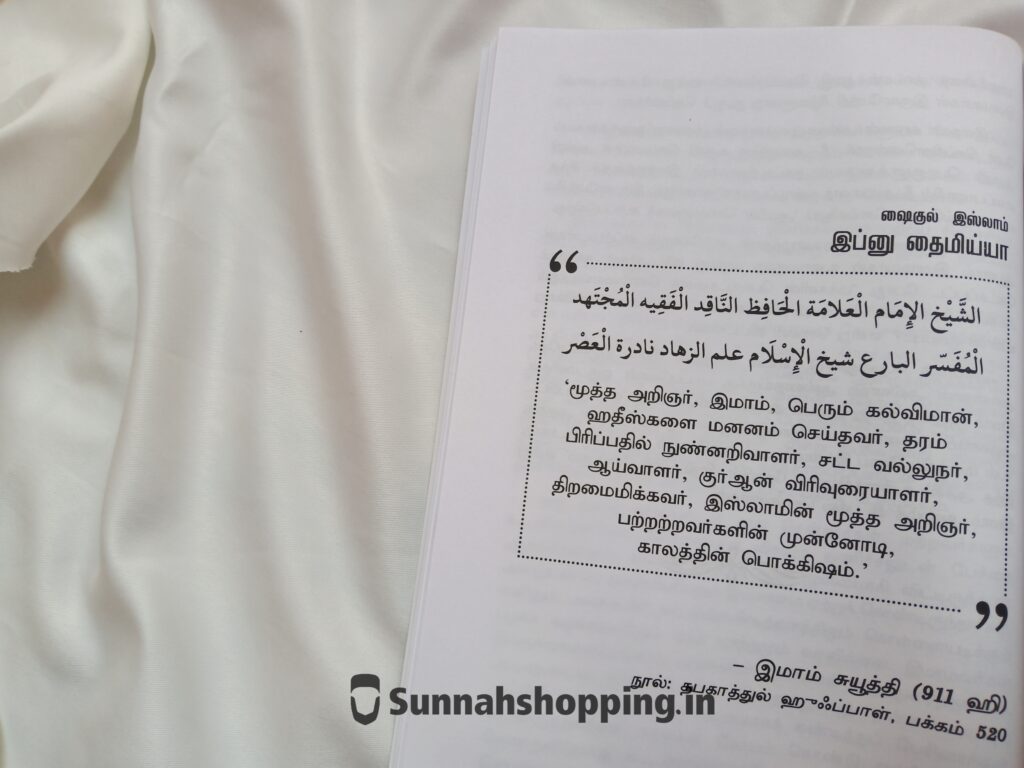 ஷைகுல் இஸ்லாம்
இப்னு தைமிய்யா
“
الشَّيْخ الإِمَام الْعَلامَة الْحَافِظ النَّاقِد الْفَقِيه الْمُجْتَهد
الْمُفَسّر البارع شيخ الْإِسْلَام علم الزهاد نادرة الْعَصْر
‘மூத்த அறிஞர், இமாம், பெரும் கல்விமான்,
ஹதீஸ்களை மனனம் செய்தவர், தரம்
பிரிப்பதில் நுண்ணறிவாளர், சட்ட வல்லுநர்,
ஆய்வாளர், குர்ஆன் விரிவுரையாளர்,
திறமைமிக்கவர், இஸ்லாமின் மூத்த அறிஞர்,
பற்றற்றவர்களின் முன்னோடி,
காலத்தின் பொக்கிஷம்.’
”
– இமாம் சுயூத்தி (911 ஹி)
நூல்: தபகாத்துல் ஹுஃப்பாள், பக்கம் 520
Sunnahshopping.in